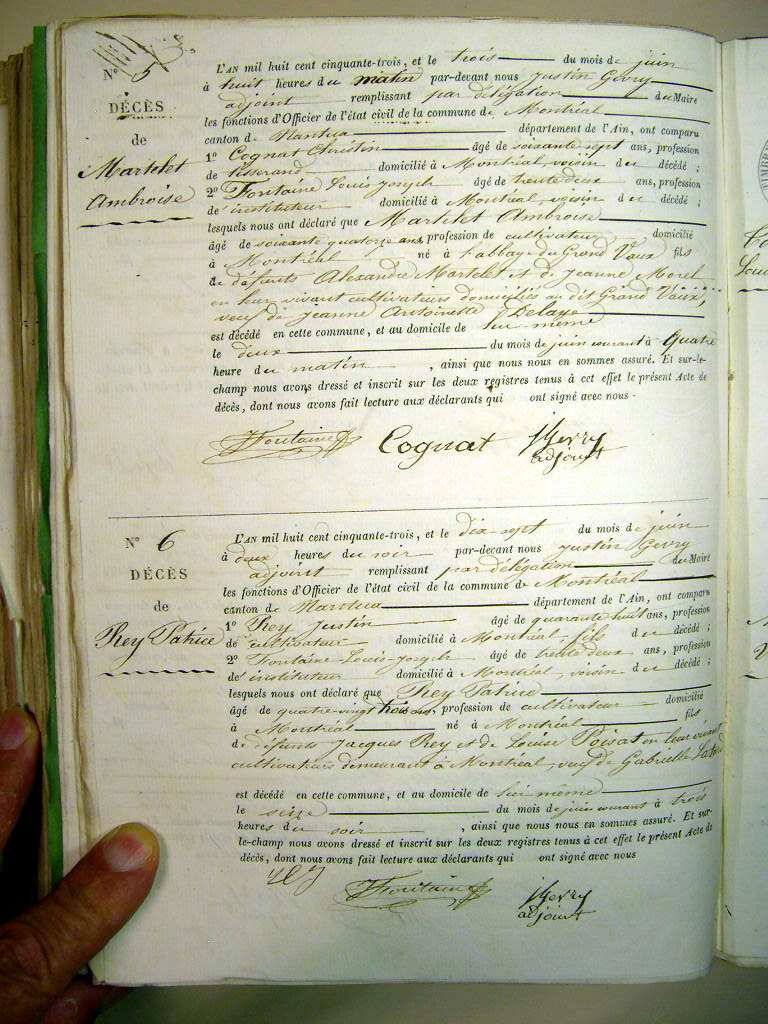 N° 5
DÉCÈS
de
Martelet
Ambroise
L'AN mil huit cent cinquante-trois, et le trois du mois de juin
à huit heures du matin par-devant nous Justin Gevry
adjoint remplissant par délégation du Maire
les fonctions d'Officier de l'état civil de la commune de Montréal
canton de Nantua département de l'Ain, ont comparu
1° Cognat Christin âgé de soixante sept ans, profession
de tisserand domicilié à Montréal, voisin du décédé ;
2° Fontaine Louis Joseph âgé de trente deux ans, profession
de instituteur domicilié à Montréal, voisin du décédé ;
lesquels nous ont déclaré que Martelet Ambroise
âgé de soixante quatorze ans, profession de cultivateur domicilié
à Montréal né à l'abbaye du Grand Vaux fils
de défunts Alexandre Martelet et de Jeanne Morel
en leur vivant cultivateurs domiciliés au dit Grand Vaux,
veuf de Jeanne Antoinette Delaye
est décédé en cette commune, et au domicile de lui même
le deux du mois de juin courant à quatre
heure du matin , ainsi que nous nous en sommes assuré. Et sur-le-
champ nous avons dressé et inscrit sur les deux registres tenus à cet effet le présent Acte de
décès, dont nous avons fait lecture aux déclarants qui ont signé avec nous
Fontaine Cognat JGevry
adjoint
N° 6
DÉCÈS
de
Rey Patrice
L'AN mil huit cent cinquante-trois, et le dix-sept du mois de juin
à deux heures du soir par-devant nous Justin Gevry
adjoint remplissant par délégation du Maire
les fonctions d'Officier de l'état civil de la commune de Montréal
canton de Nantua département de l'Ain, ont comparu
1° Rey Justin âgé de quarante huit ans, profession
de cultivateur domicilié à Montréal, fils du décédé ;
2° Fontaine Louis-Joseph âgé de trente deux ans, profession
de instituteur domicilié à Montréal, voisin du décédé ;
lesquels nous ont déclaré que Rey Patrice
âgé de quatre-vingt trois ans, profession de cultivateur domicilié
à Montréal né à Montréal fils
de défunts Jacques Rey et de Louise Poisat en leur vivant
cultivateurs demeurant à Montréal, veuf de Gabrielle
est décédé en cette commune, et au domicile de lui même
le seize du mois de juin courant à trois
heures du soir , ainsi que nous nous en sommes assuré. Et sur-
le-champ nous avons dressé et inscrit sur les deux registres tenus à cet effet le présent Acte de
décès, dont nous avons fait lecture aux déclarants qui ont signé avec nous
Fontaine JGevry
adjoint